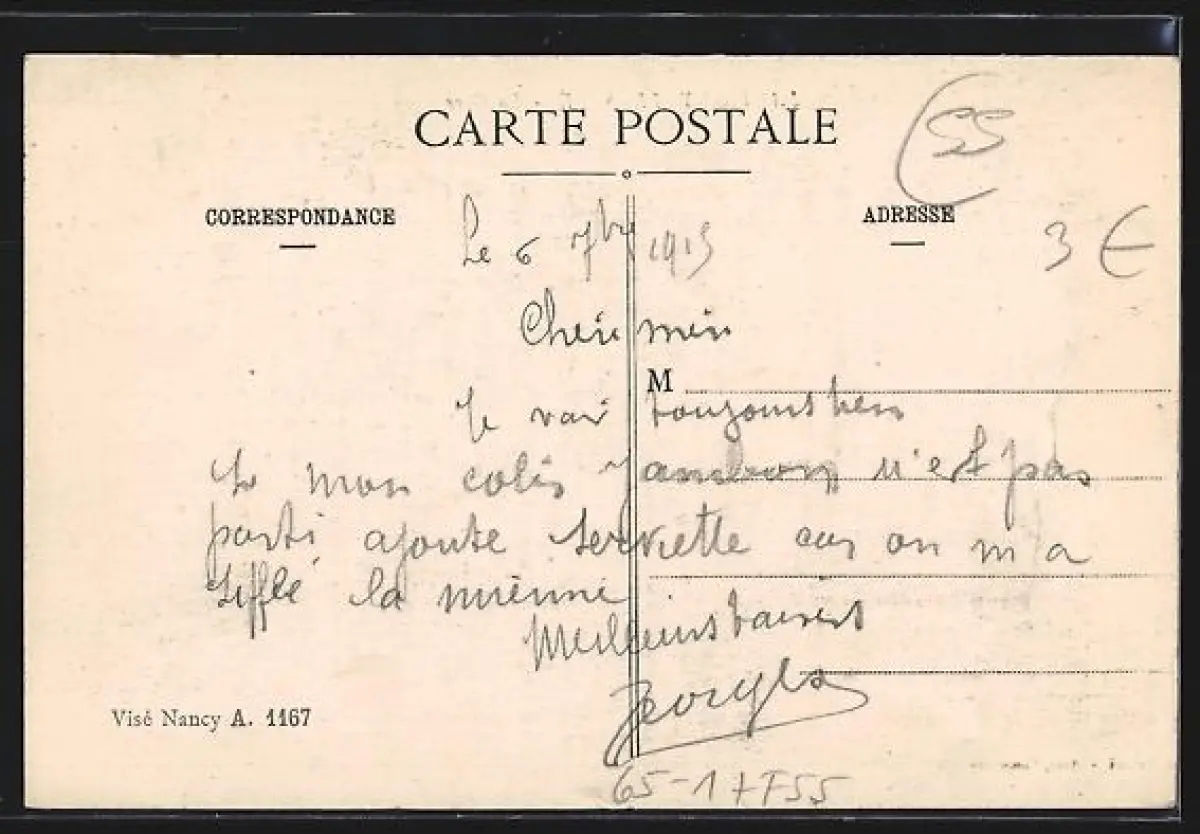 CARTE POSTALE
55
CORRESPONDANCE
ADRESSE
Le 6 7bre 1915
3 €
Cherie mien
M
Je vais toujours bien
Si mon colis jambon n'est pas
parti ajoute serviette car on m'a
siffle la mienne
Meilleurs baisers
Georges
Visé Nancy A. 1167
65-1 + T55